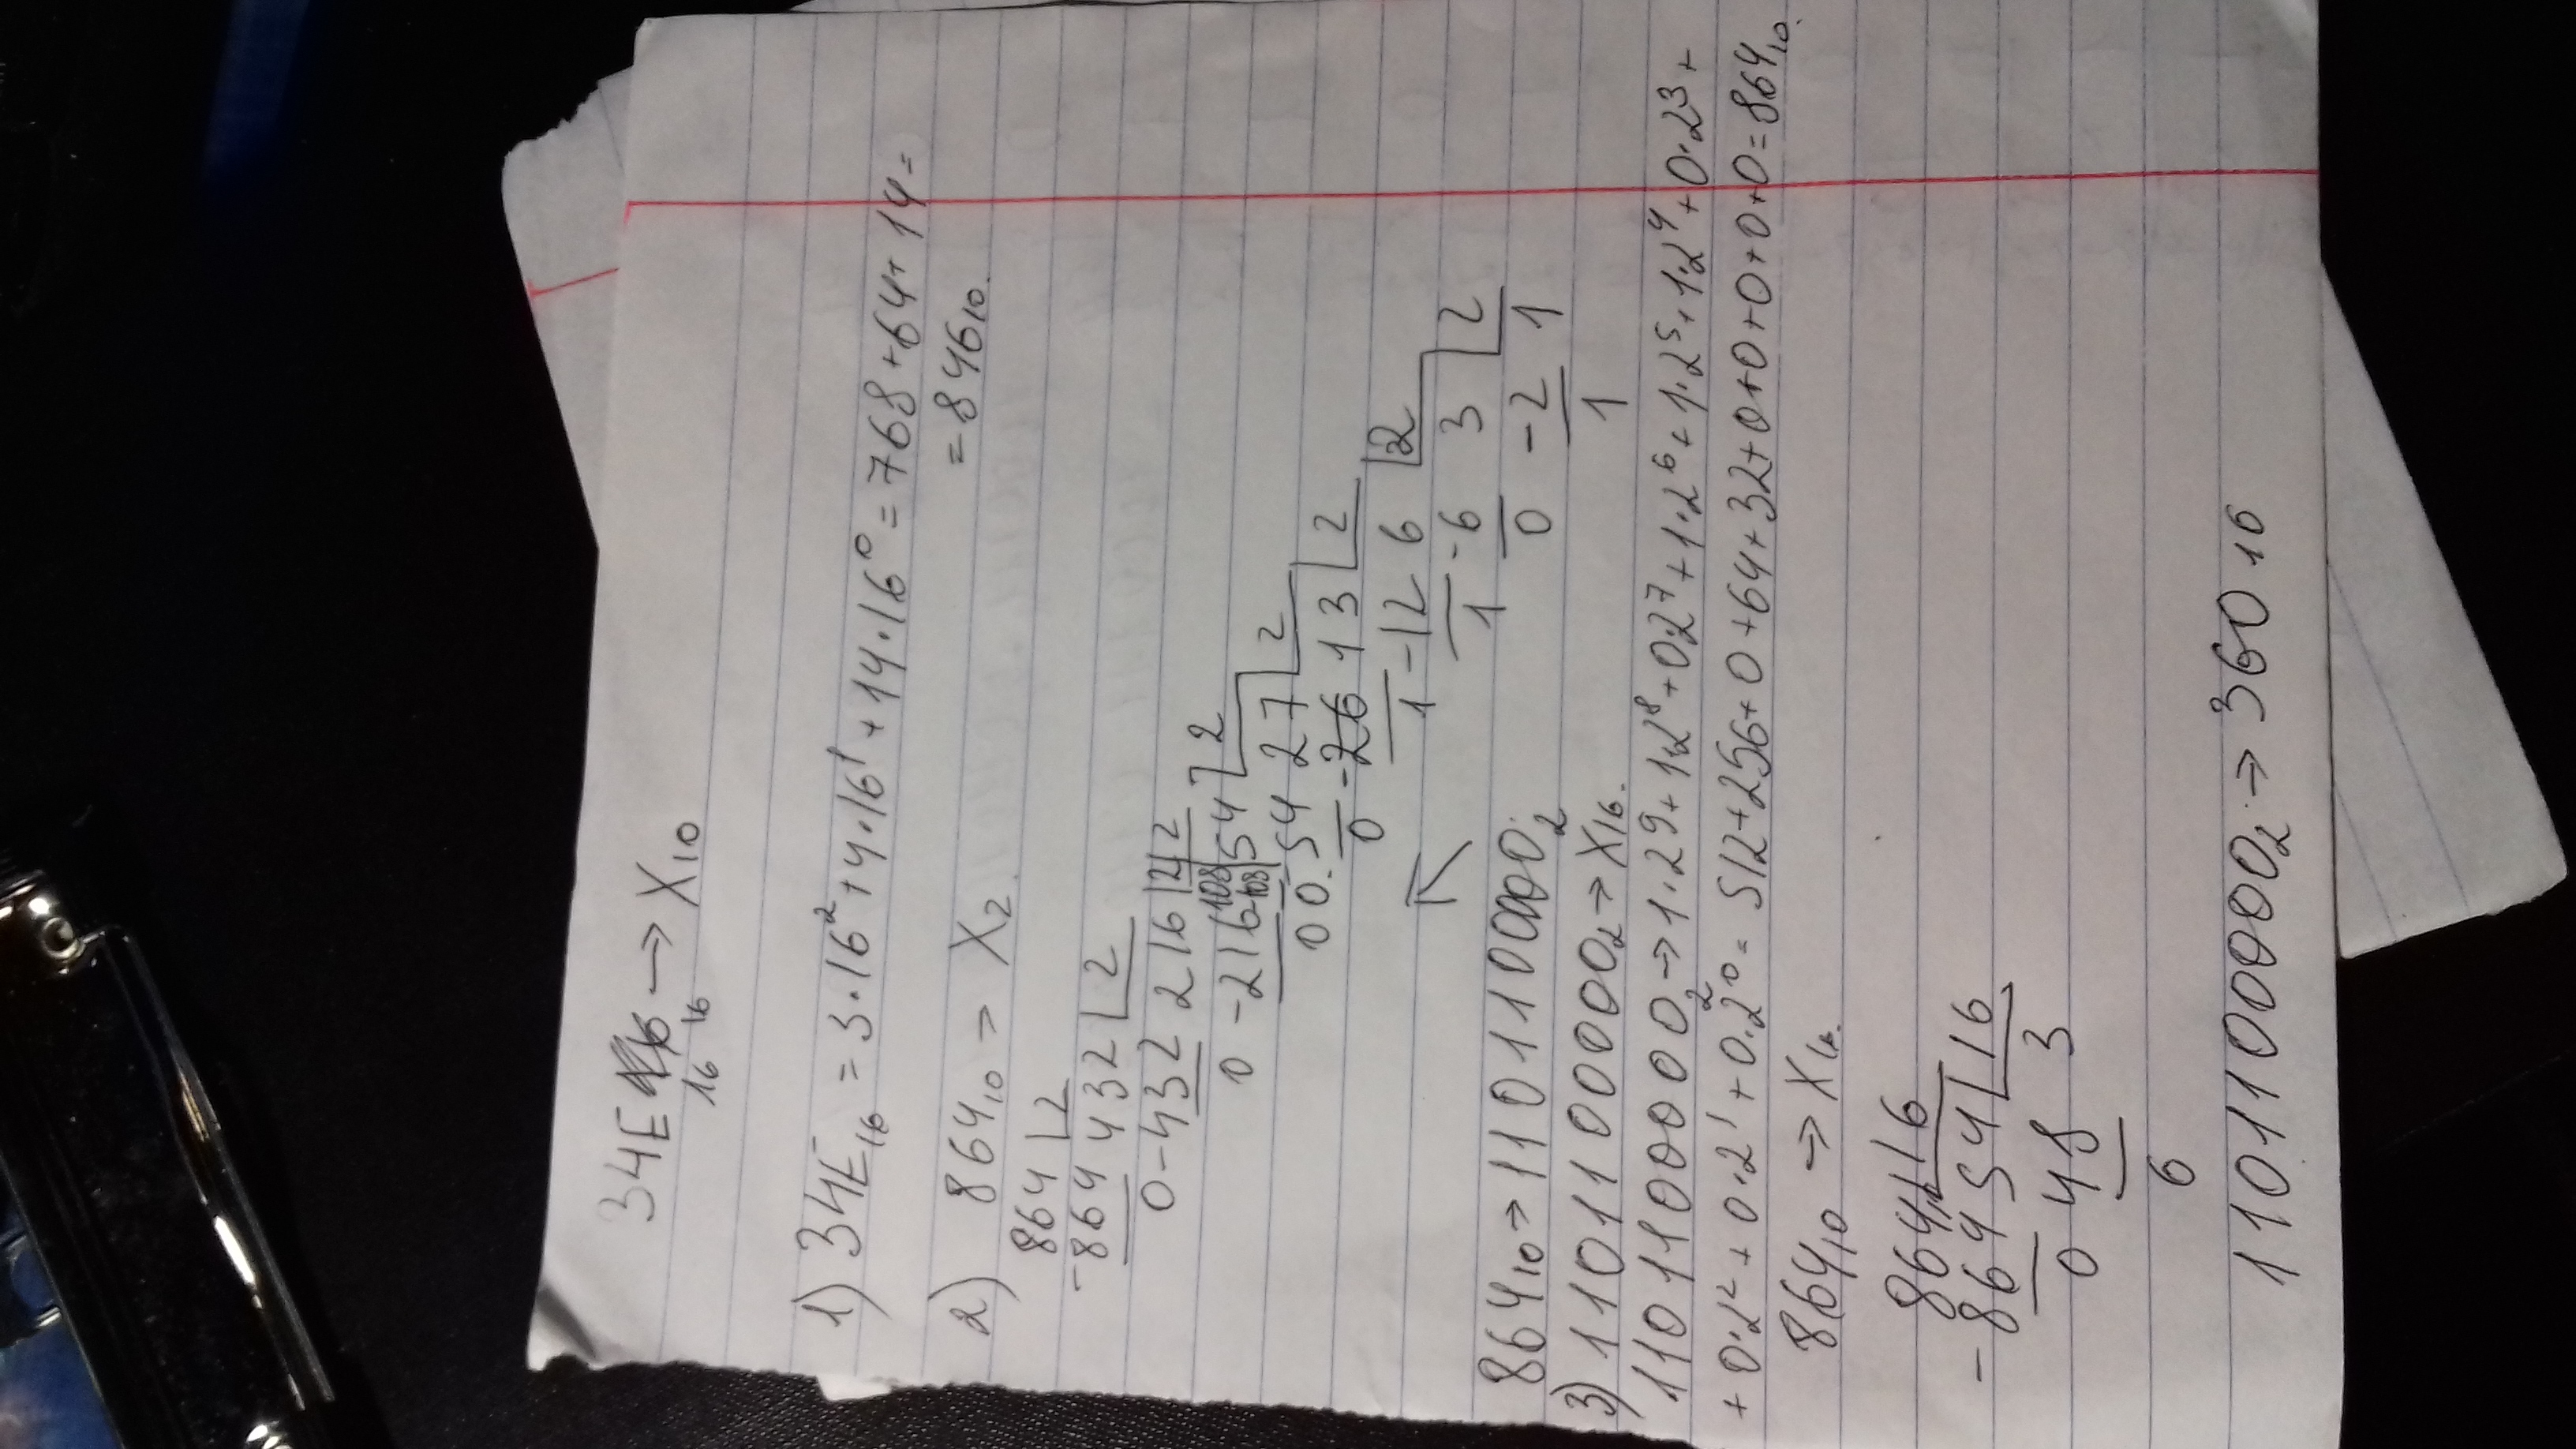 34E₁₆ → X₁₀
16 16
1) 34E₁₆ = 3·16² + 4·16¹ + 14·16⁰ = 768 + 64 + 14 =
= 846₁₀.
2) 864₁₀ → X₂.
864 | 2
-864 432 | 2
0 -432 216 | 2
0 -216 108 | 2
0 -108 54 | 2
0 0. 54 27 | 2
0 -26 13 | 2
1 -12 6 | 2
1 -6 3 | 2
0 -2 1
1
864₁₀ → 1101100000₂.
3) 1101100000₂ → X₁₆.
1101100000₂ → 1·2⁹ + 1·2⁸ + 0·2⁷ + 1·2⁶ + 1·2⁵ + 1·2⁴ + 0·2³ +
+ 0·2² + 0·2¹ + 0·2⁰ = 512 + 256 + 0 + 64 + 32 + 0 + 0 + 0 + 0 + 0 = 864₁₀.
864₁₀ → X₁₆.
864 | 16
-864 54 | 16
0 48 3
6
1101100000₂ → 360₁₆